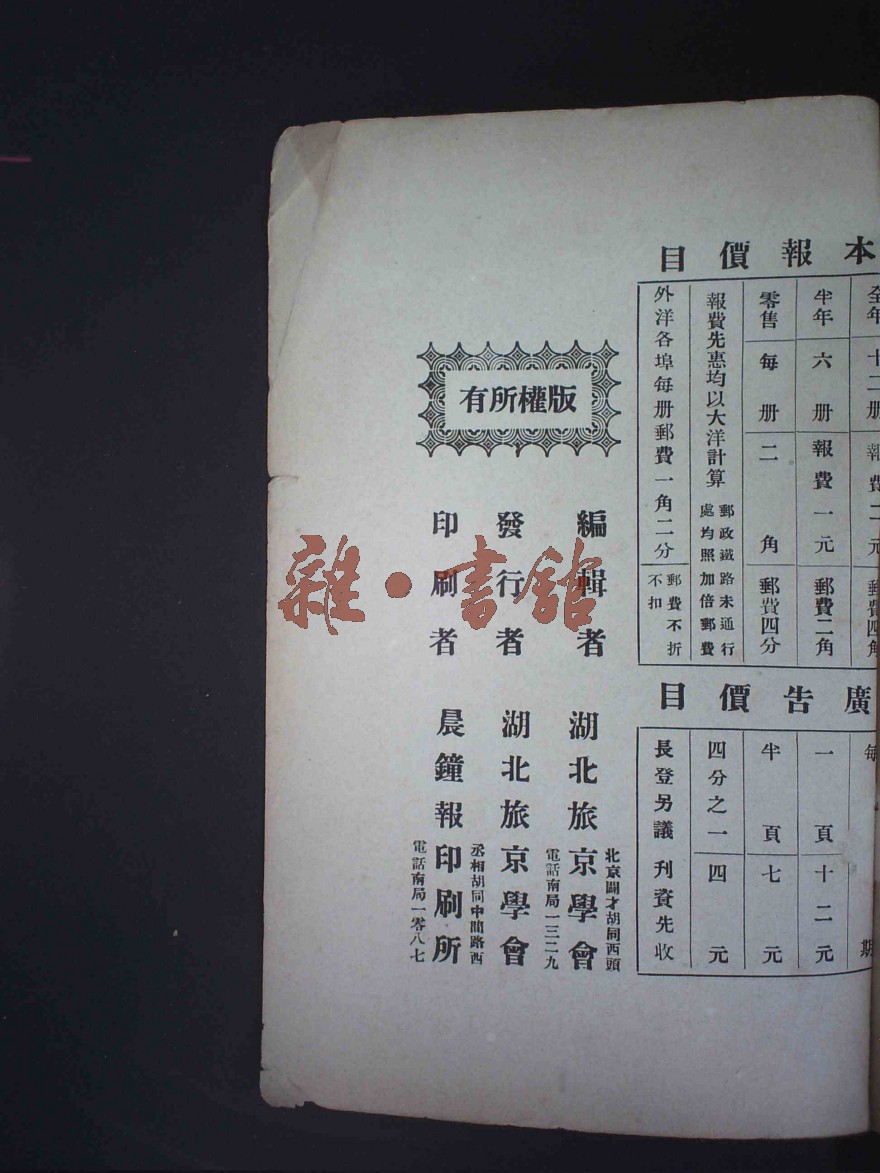 本報價目
全年十二册報費二元郵費四角
半年六册報費一元郵費二角
零售每册二角郵費四分
報費先惠均以大洋計算
郵政鐵路未通行
處均照加倍郵費
外洋各埠每册郵費一角二分
郵費不折
不扣
廣告價目
每期
一頁十二元
半頁七元
四分之一四元
長登另議刋資先收
版權所有
編輯者湖北旅京學會
北京闢才胡同西頭
電話南局一三二九
發行者湖北旅京學會
印刷者晨鐘報印刷所
丞相胡同中間路西
電話南局一零八七
雜·書館